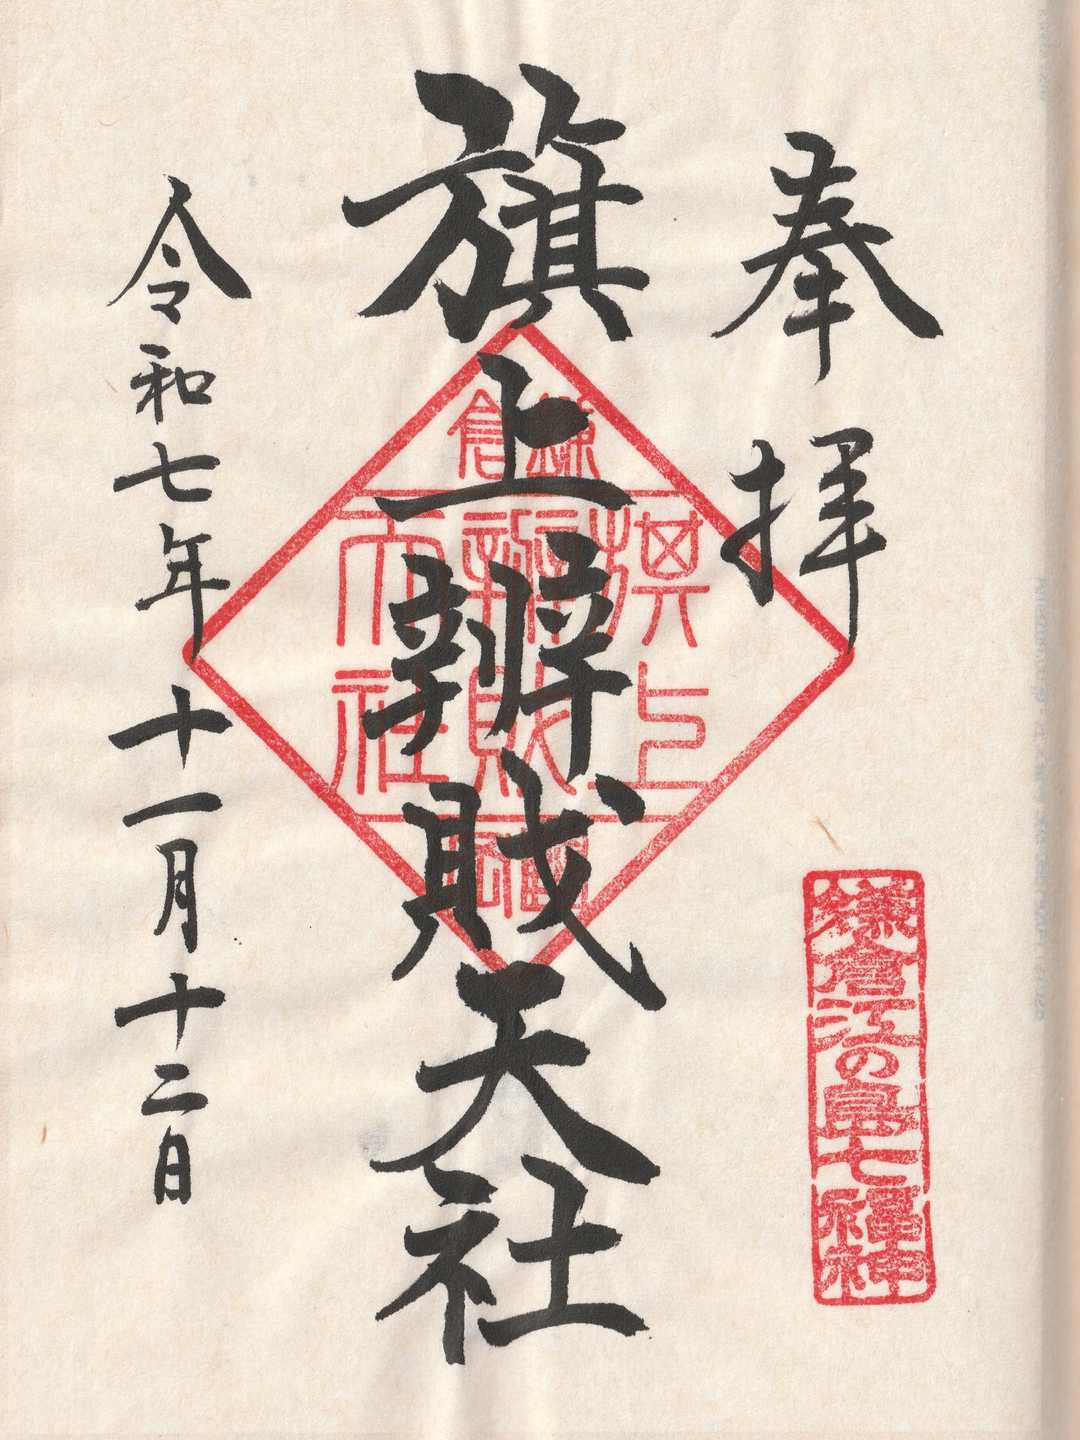 奉拝
鎌倉江の島七福神
旗上辨財天社
鎌倉
旗上
辨財
天社
令和七年十一月十二日